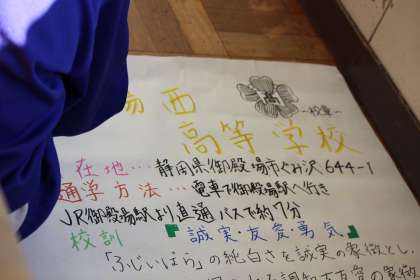 場西
高
〜校章〜
高等学校
在地…静岡県御殿場市ぐみ沢644-1
通学方法…電車で御殿場駅へ行き
JR御殿場駅より直通バスで約7分
校訓 「誠実・友愛・勇気」
「ふじいばら」の純白さを誠実の象徴とし、